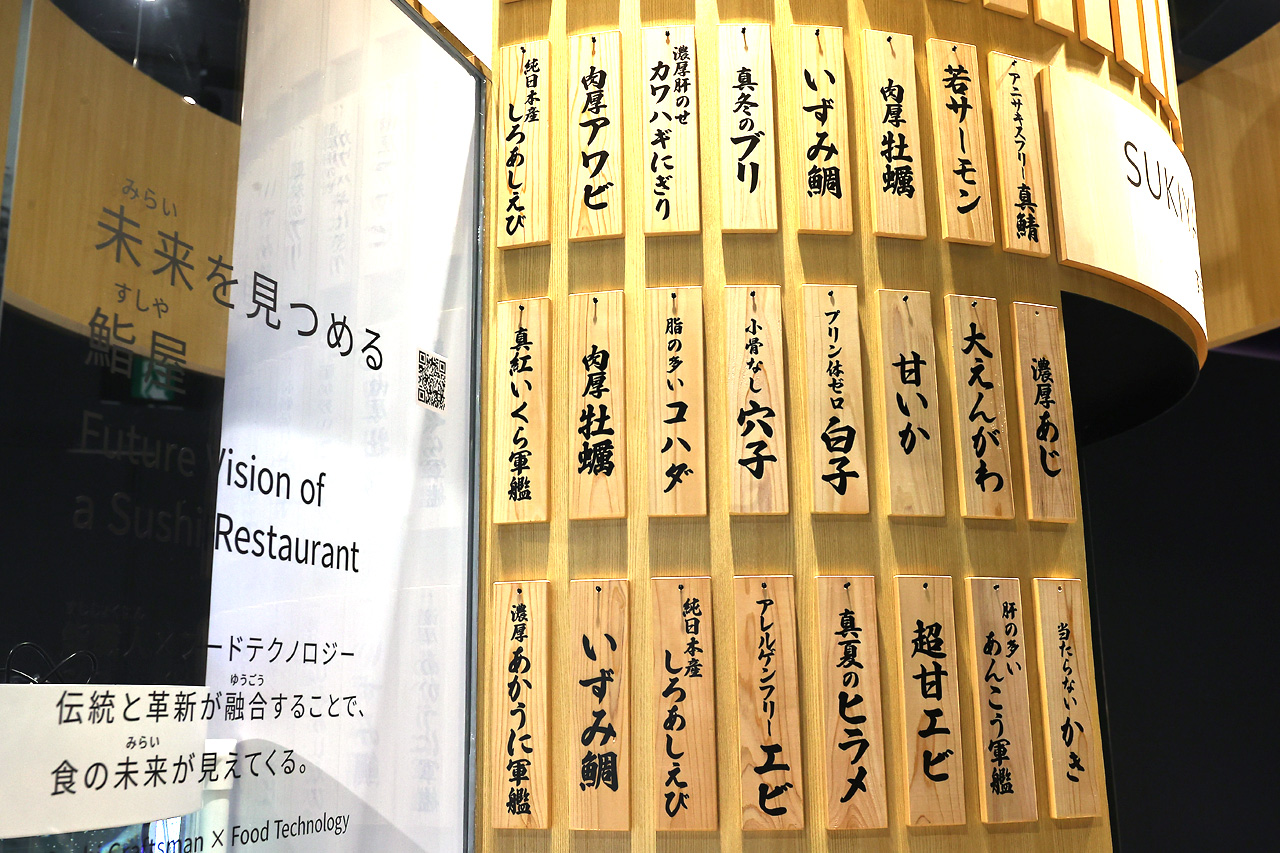 みらい
未来を見つめる
すしや
鮨屋
Future Vision of
a Sushi Restaurant
ードテクノロジー
ゆうごう
伝統と革新が融合することで、
みらい
食の未来が見えてくる。
Craftsman × Food Technology
純日本産
しろあしえび
肉厚アワビ
濃厚肝のせ
カワハギにぎり
真冬のブリ
いずみ鯛
肉厚牡蠣
若サーモン
アニサキスフリー真鯖
SUKIY
真紅いくら軍艦
肉厚牡蠣
脂の多いコハダ
小骨なし穴子
プリン体ゼロ白子
甘いか
大えんがわ
濃厚あじ
濃厚あかうに軍艦
いずみ鯛
純日本産
しろあしえび
アレルゲンフリーエビ
真夏のヒラメ
超甘エビ
肝の多い
あんこう軍艦
当たらないかき